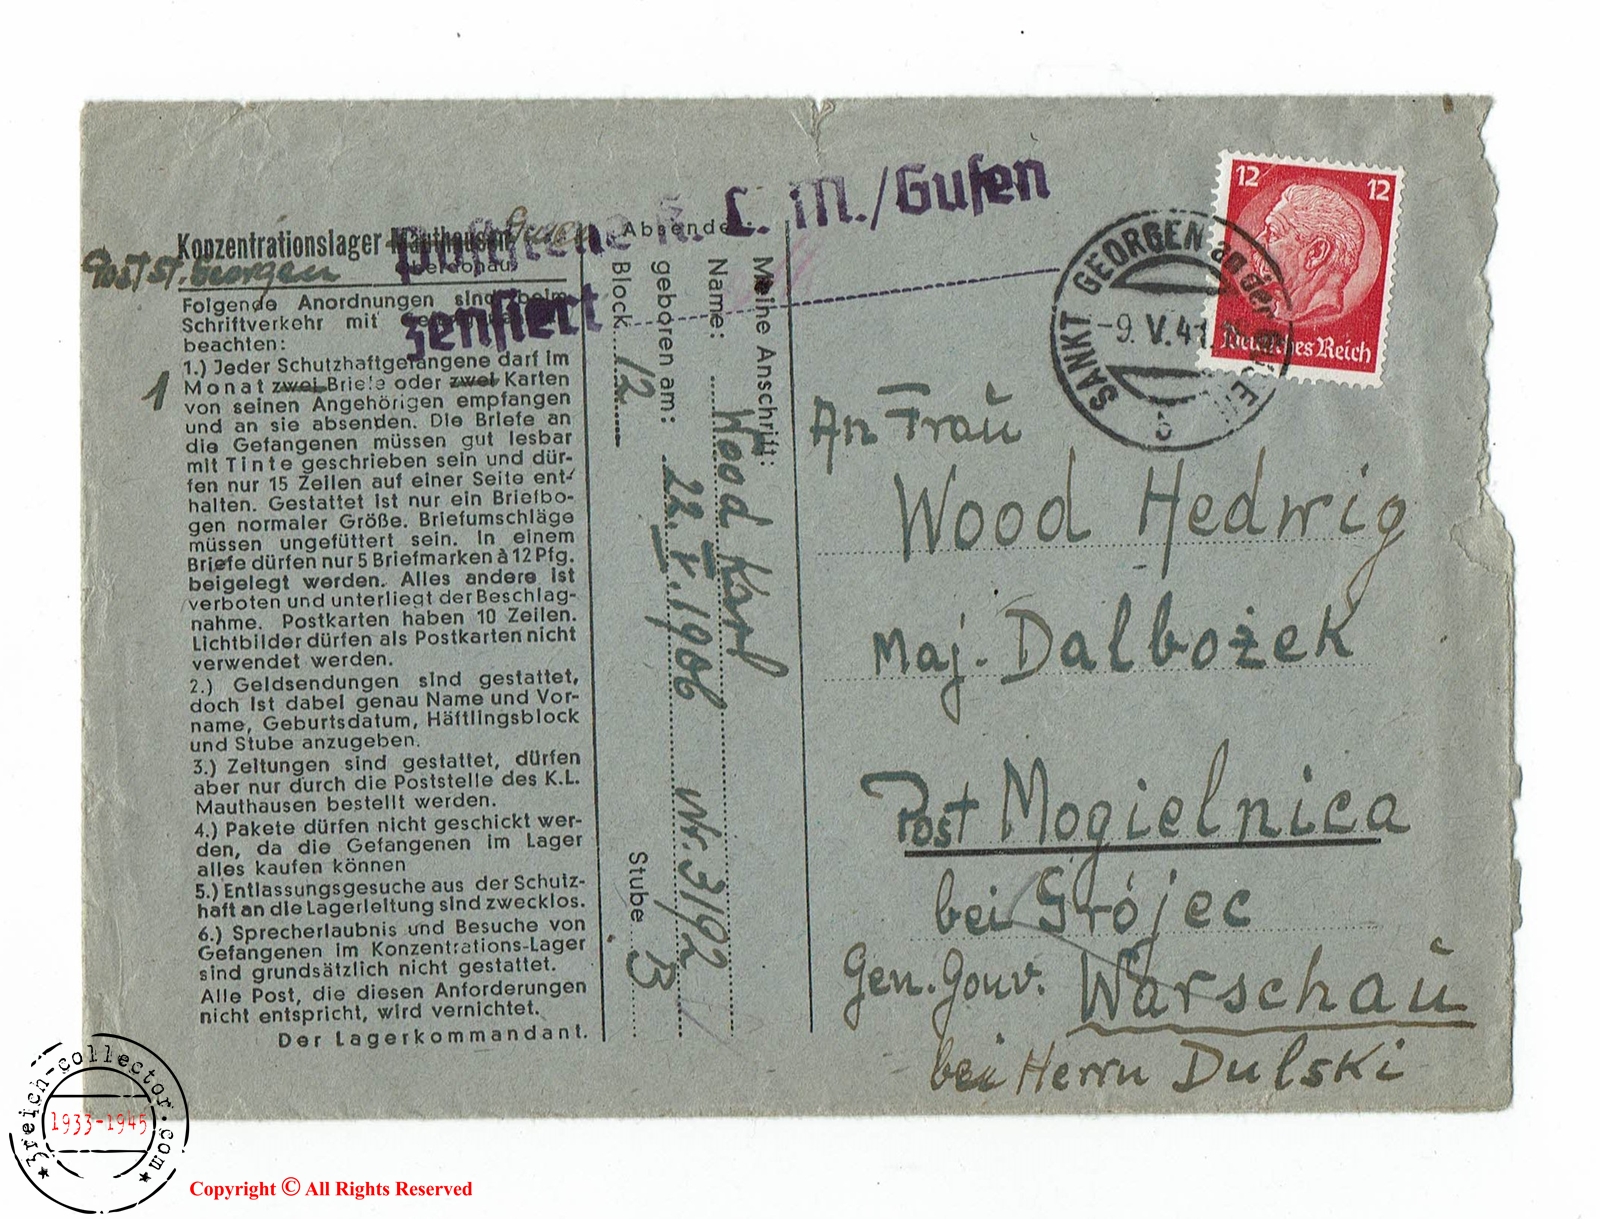 Konzentrationslager Mauthausen
Oberdonau
Post St. Georgen
Folgende Anordnungen sind beim
Schriftverkehr mit
beachten:
1.) Jeder Schutzhaftgefangene darf im
1
Monat zwei Briefe oder zwei Karten
von seinen Angehörigen empfangen
und an sie absenden. Die Briefe an
die Gefangenen müssen gut lesbar
mit Tinte geschrieben sein und dür-
fen nur 15 Zeilen auf einer Seite ent-
halten. Gestattet ist nur ein Briefbo-
gen normaler Größe. Briefumschläge
müssen ungefüttert sein. In einem
Briefe dürfen nur 5 Briefmarken à 12 Pfg.
beigelegt werden. Alles andere ist
verboten und unterliegt der Beschlag-
nahme. Postkarten haben 10 Zeilen.
Lichtbilder dürfen als Postkarten nicht
verwendet werden.
2.) Geldsendungen sind gestattet,
doch ist dabei genau Name und Vor-
name, Geburtsdatum, Häftlingsblock
und Stube anzugeben.
3.) Zeitungen sind gestattet, dürfen
aber nur durch die Poststelle des K.L.
Mauthausen bestellt werden.
4.) Pakete dürfen nicht geschickt wer-
den, da die Gefangenen im Lager
alles kaufen können
5.) Entlassungsgesuche aus der Schutz-
haft an die Lagerleitung sind zwecklos.
6.) Sprecherlaubnis und Besuche von
Gefangenen im Konzentrations-Lager
sind grundsätzlich nicht gestattet.
Alle Post, die diesen Anforderungen
nicht entspricht, wird vernichtet.
Der Lagerkommandant.
K. L. M./Gusen
zensiert
Absender:
Meine Anschrift:
Name: Wood Karl
geboren am: 22.V.1906 Nr. 3192
Block 12 Stube B
12 12
Deutsches Reich
SANKT GEORGEN an der
-9.V.41
b
An Frau
Wood Hedwig
Maj. Dalbożek
Post Mogielnica
bei Grójec
Gen. Gouv. Warschau
bei Herrn Dulski
3reich-collector.com
1933-1945
Copyright © All Rights Reserved